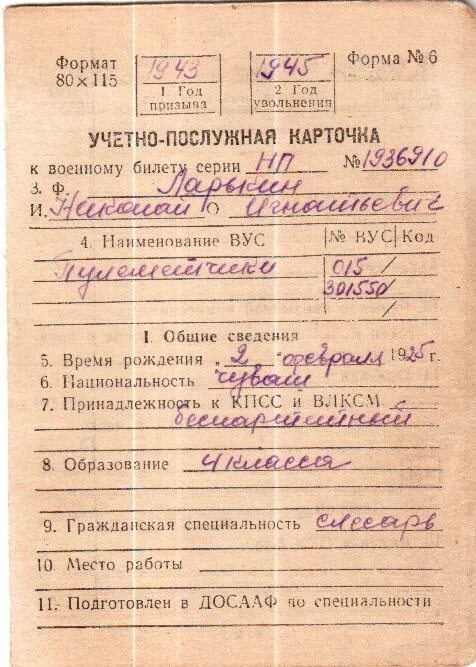 Формат 80×115
1943
1. Год призыва
1945
2. Год увольнения
Форма № 6
УЧЕТНО-ПОСЛУЖНАЯ КАРТОЧКА
к военному билету серии НП № 1936910
3. Ф. Ларькин
И. Николай О Игнатьевич
4. Наименование ВУС № ВУС Код
Пулеметчики 015/
301550/
/
I. Общие сведения
5. Время рождения „2 " февраля 1925 г.
6. Национальность чуваш
7. Принадлежность к КПСС и ВЛКСМ
беспартийный
8. Образование 4 класса
9. Гражданская специальность слесарь
10. Место работы
11. Подготовлен в ДОСААФ по специальности